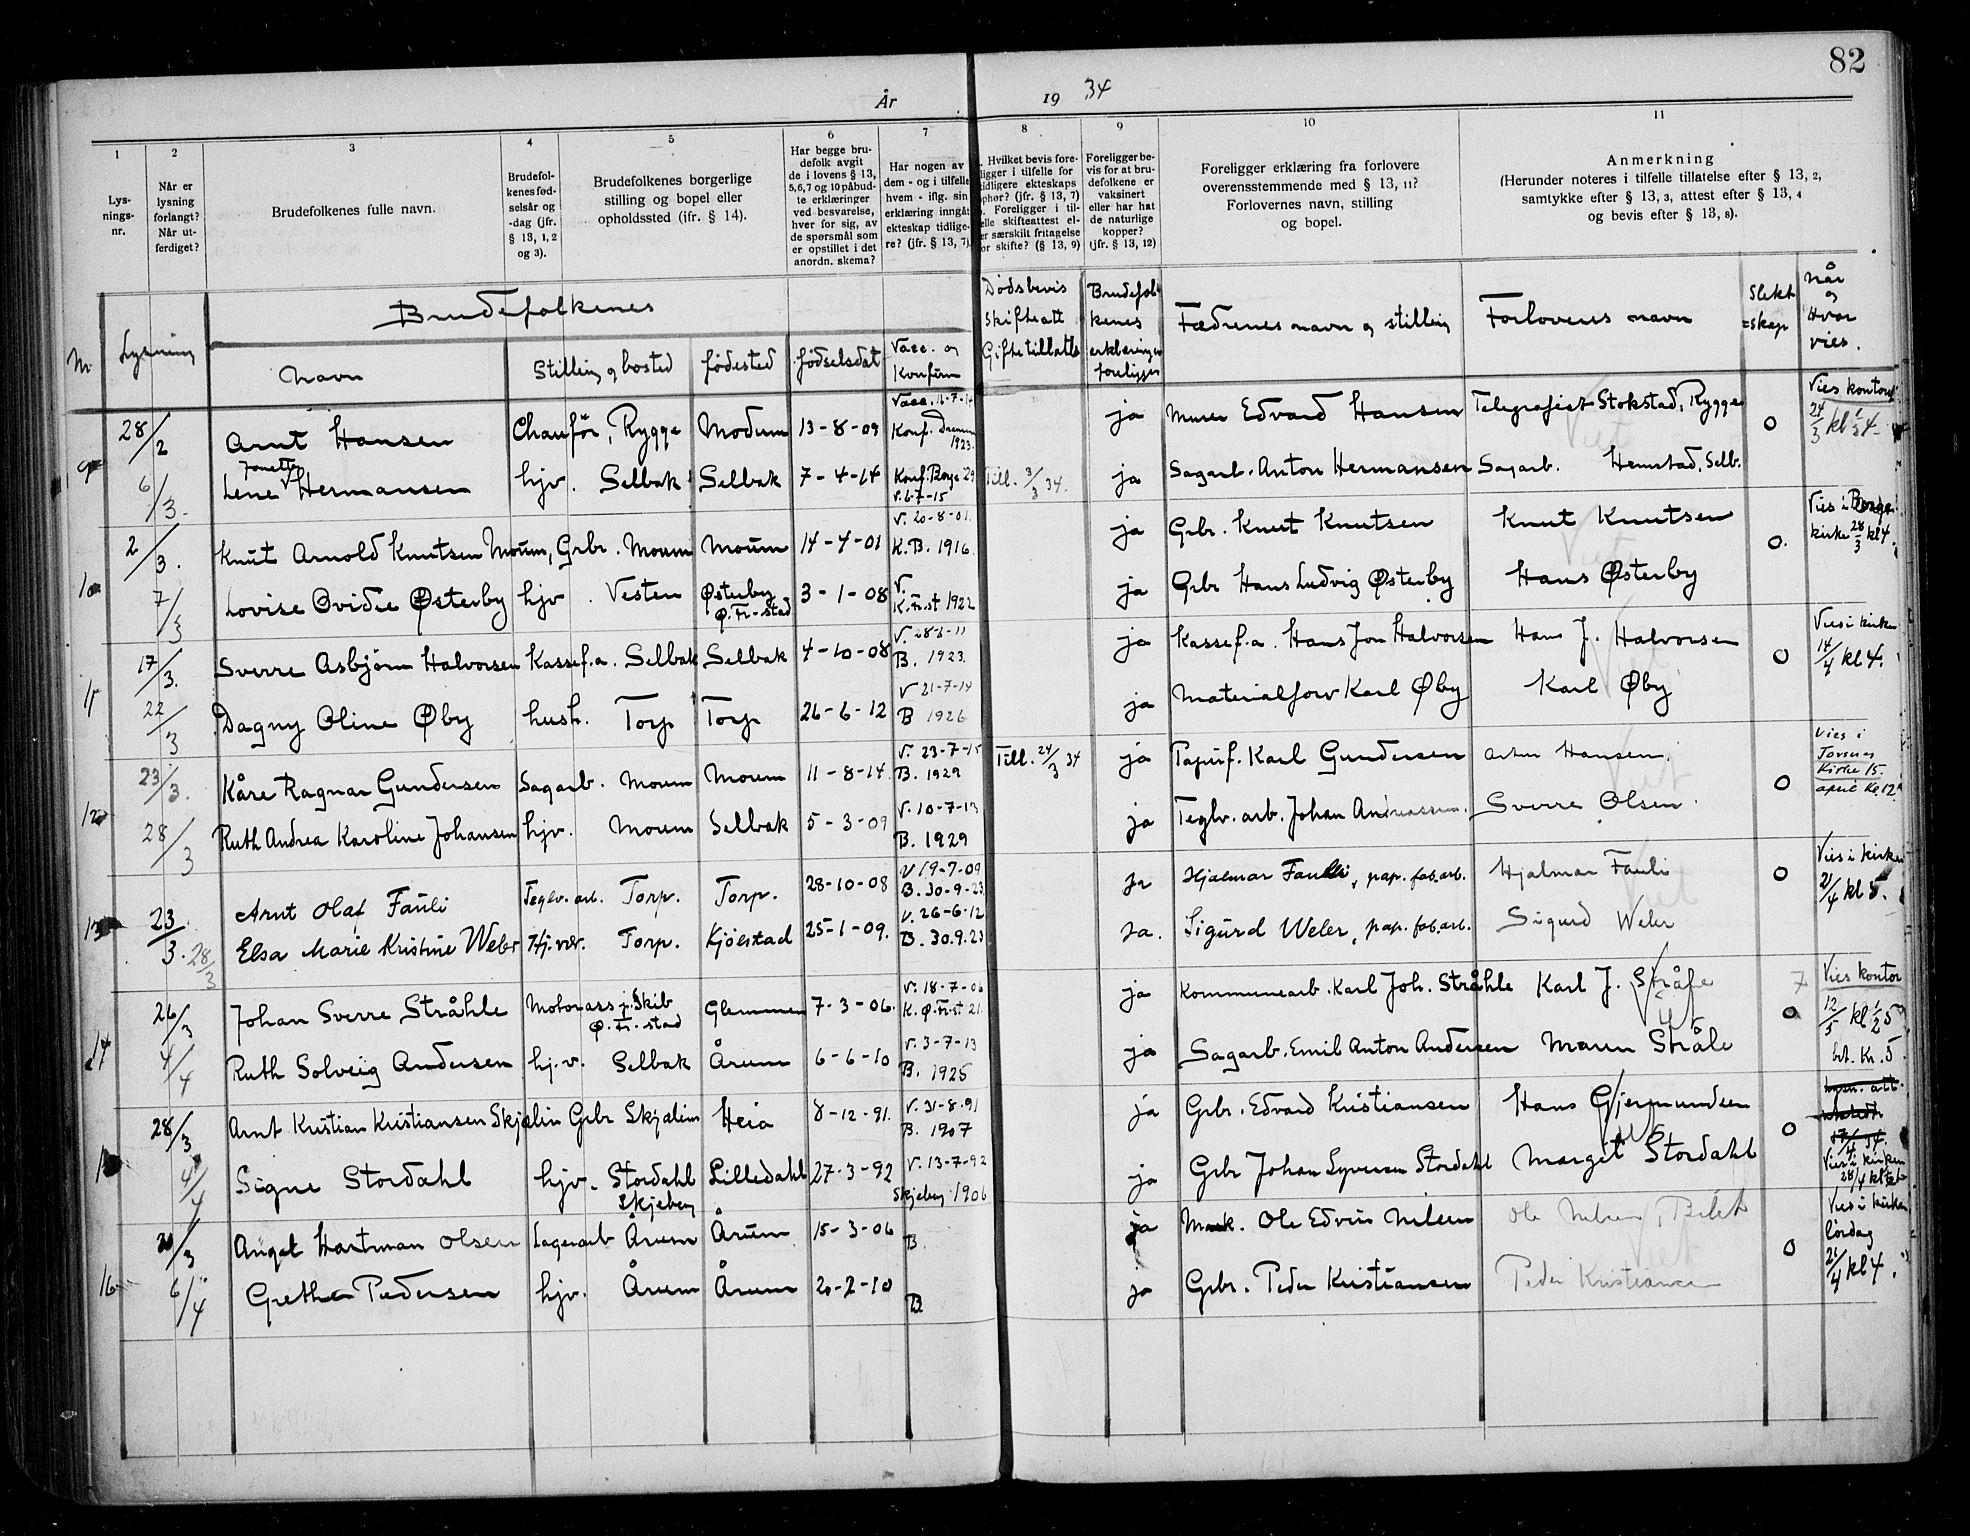 82
År 19 34
1 2 3 4 5 6 7 8 9 10 11
Lys-
nings-
nr.
Når er
lysning
forlangt?
Når ut-
ferdiget?
Brudefolkenes fulle navn.
Brudefol-
kenes fød-
selsår og
-dag (jfr.
§ 13, 1, 2
og 3).
Brudefolkenes borgerlige
stilling og bopel eller
opholdssted (jfr. § 14).
Har begge bru-
defolk avgit
de i lovens § 13,
5, 6, 7 og 10 påbud-
te erklæringer
ved besvarelse,
hver for sig, av
de spørsmål som
er opstillet i det
anordn. skema?
Har nogen av
dem - og i tilfelle
hvem - iflg. sin
erklæring inngått
ekteskap tidlige-
re? (jfr. § 13, 7).
Hvilket bevis fore-
ligger i tilfelle for
tidligere ekteskaps
ophør? (jfr. § 13, 7)
Foreligger i til-
felle skifteattest el-
ler særskilt fritagelse
for skifte? (§ 13, 9)
Foreligger be-
vis for at bru-
defolkene er
vaksinert
eller har hat
de naturlige
kopper?
(jfr. § 13, 12)
Foreligger erklæring fra forlovere
overensstemmende med § 13, 11?
Forlovernes navn, stilling
og bopel.
Anmerkning
(Herunder noteres i tilfelle tillatelse efter § 13, 2,
samtykke efter § 13, 3, attest efter § 13, 4
og bevis efter § 13, 8).
Nr Lysning Brudefolkenes
Navn Stilling og bosted fødested fødselsdat Vacc. og
Konfirm
Dødsbevis
Skifteatt
Giftetillatls
Brudefol-
kenes
erklæringer
foreligger
Fædrenes navn og stilling Forloveres navn Slekt
=skap
Når
og
Hvor
vies.
9 28/2 Arnt Hansen Chauför, Rygge Modum 13-8-09 Konf. Dramm 1923. ja Murer Edvard Hansen Telegrafist Stokstad, Rygge o Vies kontoret 24/3 kl ½ 4
6/3. Lene Jonette Hermansen hjv. Selbak Selbak 7-4-14 Konf. Borge 29 V. 6-7-15 Till. 3/3 34. ja Sagarb. Anton Hermansen Sagarb. Hemstad, Selb.
10 2/3. Knut Arnold Knutsen Moum, Grbr. Moum Moum 14-4-01 V. 20-8-01. K.B. 1916. ja Grbr. Knut Knutsen Knut Knutsen o. Vies i Borge kirke 28/3 kl 4.
7/3 Lovise Ovidie Østerby hjv. Vesten Østerby Ø. Fr-stad 3-1-08 V. K. Fr.st 1922 ja Grbr Hans Ludvig Østerby Hans Østerby
11 17/3. Sverre Asbjørn Halvorsen Kassef.a. Selbak Selbak 4-10-08 B. 1923. ja Kassef.a. Hans Jon Halvorsen Hans J. Halvorsen o Vies i kirken 14/4 kl 4.
22/3 Dagny Oline Øby hush. Torp Torp 26-6-12 V 21-7-14 B 1926 ja Materialforv Karl Øby Karl Øby
12 23/3. Kåre Ragnar Gundersen Sagarb. Moum Moum 11-8-14 V. 23-7-15 B. 1929 Till. 24/3 34 ja Papirf. Karl Gundersen Hansen. o Vies i Torsnes Kirke 15. april Kl. 12.
28/3 Ruth Andrea Karoline Johansen hjv. Moum Selbak 5-3-09 V. 10-7-13 B. 1929 ja Teglv. arb. Johan Andreassen. Sverre Olsen.
13 23/3. Arnt Olaf Fauli Teglv. arb. Torp. Torp. 28-10-08 V 19-7-09 B. 30-9-23 Ja Hjalmar Fauli, pap. fab.arb. Hjalmar Fauli o Vies i kirken 21/4 kl 5.
28/3 Elsa Marie Kristine Weler Hj.vær. Torp. Kjölstad 25-1-09. V. 26-6-12 B. 30.9.23 Ja. Sigurd Weler, pap. fab.arb. Sigurd Weler
14 26/3 Johan Sverre Stråhle Motorass p. Skib Ø. Fr.-stad Glemmen 7-3-06. V. 18-7-06 K. Ø. Fr.st 21. ja Kommunearb. Karl Joh. Stråhle Karl J. Stråle o Vies kontor 12/5 kl ½ 5
4/4 Ruth Solveig Andersen hj.v. Selbak Årum 6-6-10 V. 3-7-13 B. 1925 ja Sagarb. Emil Anton Andersen Maren Ståle bet. Kr. 5.
28/3 Arnt Kristian Kristiansen Skjælin Grbr Skjælin Heia 8-12-91. V. 31-8-91 B. 1907 ja Grbr. Edvard Kristiansen Hans Gjermundsen o
4/4 Signe Stordahl hjv. Stordahl Skjeberg Lilledahl 27-3-92 V. 13-7-92 Skjeberg 1906 ja Grbr Johan Syversen Stordahl Margit Stordahl Vies i kirken 28/4
16 /3 August Hartman Olsen Lagerarb Årum Årum 15-3-06 B. ja Ole Edvin Nilsen Ole Nilsen o Vies i kirken lördag 21/4 kl 4.
6/4 Grethe Pedersen hjv. Årum Årum 20-2-10 B ja Grbr. Peder Kristiansen Peder Kristiansen